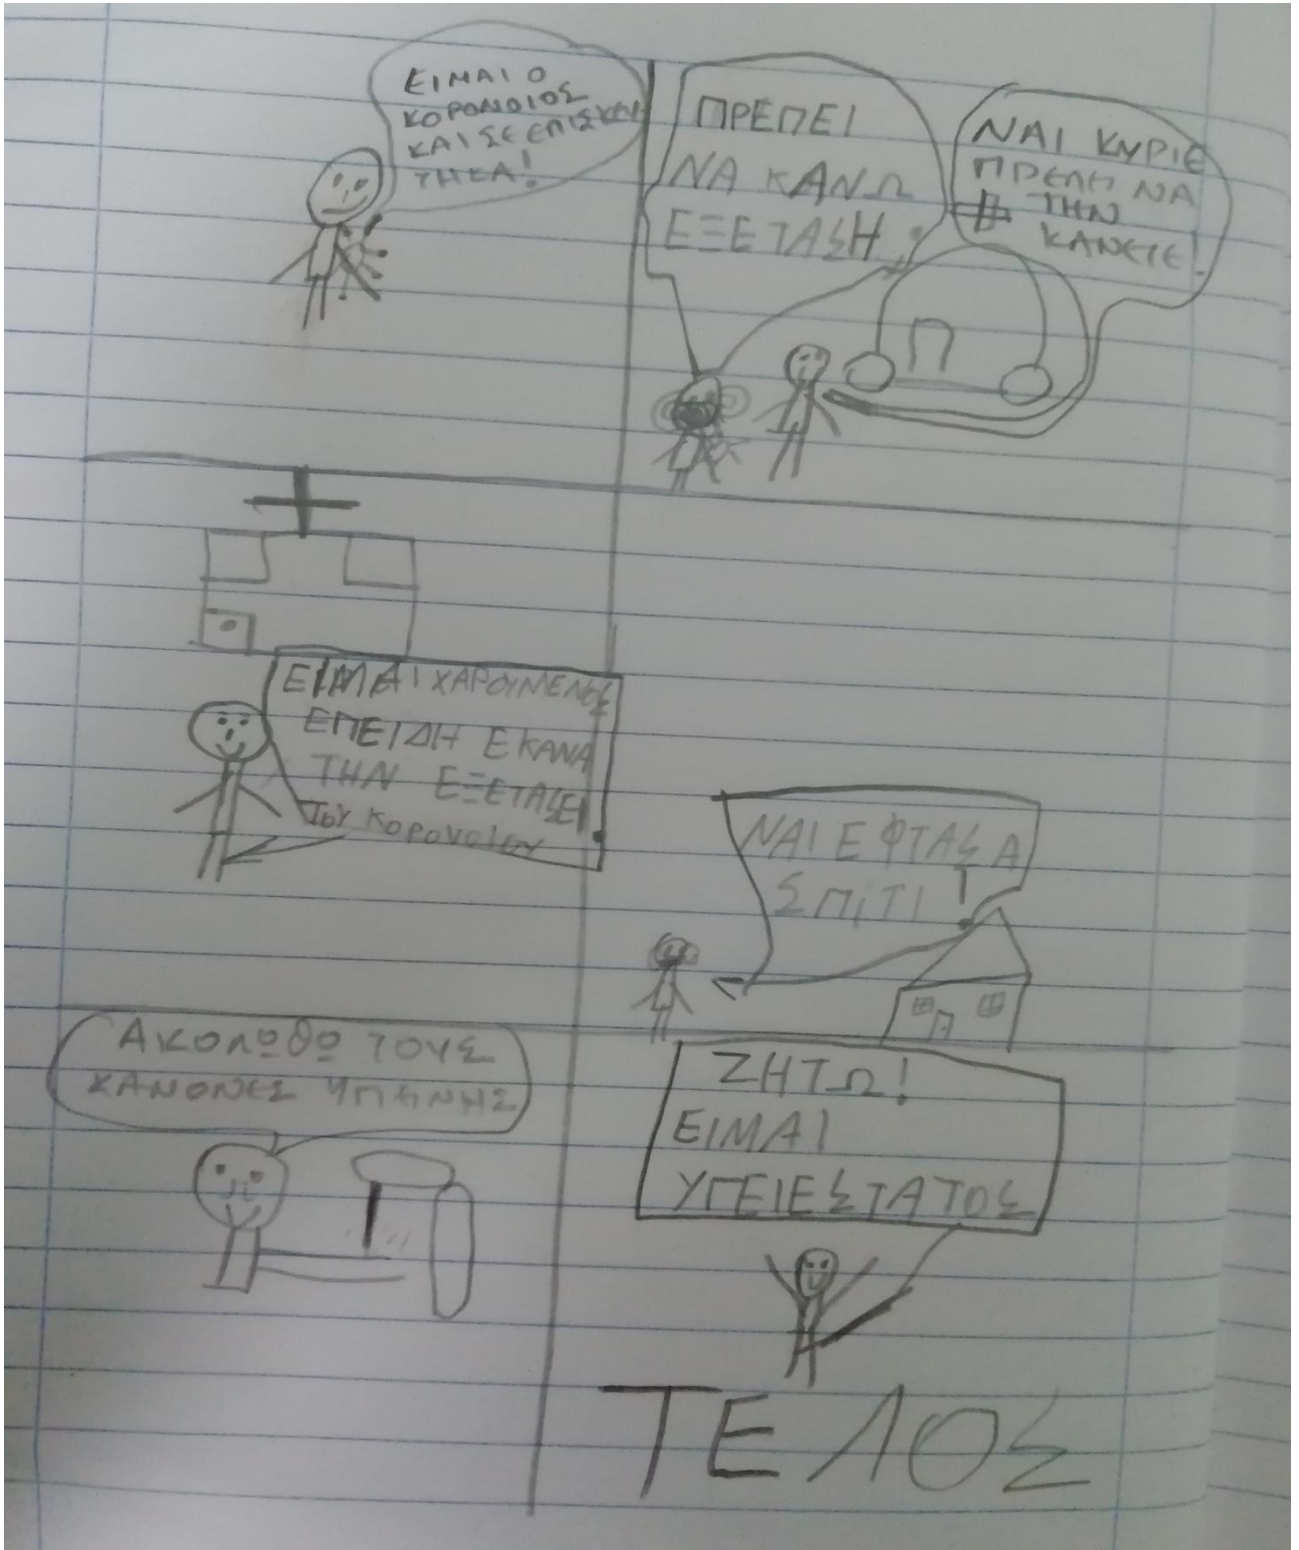 ΕΙΜΑΙ Ο
ΚΟΡΟΝΟΙΟΣ
ΚΑΙ ΣΕ ΕΠΙΣΚΕΥ
ΤΗΚΑ!
ΠΡΕΠΕΙ
ΝΑ ΚΑΝΩ
ΕΞΕΤΑΣΗ;
ΝΑΙ ΚΥΡΙΕ
ΠΡΕΠΗ ΝΑ
ΤΗΝ
ΚΑΝΕΤΕ!
ΕΙΜΑΙ ΧΑΡΟΥΜΕΝΟΣ
ΕΠΕΙΔΗ ΕΚΑΝΑ
ΤΗΝ ΕΞΕΤΑΣΕΙ
ΤΟΥ ΚΟΡΟΝΟΙΟΥ
ΝΑΙ ΕΦΤΑΣΑ
ΣΠΙΤΙ!
ΑΚΟΛΩΘΩ ΤΟΥΣ
ΚΑΝΟΝΕΣ ΥΓΙΗΝΗΣ
ΖΗΤΩ!
ΕΙΜΑΙ
ΥΓΕΙΕΣΤΑΤΟΣ
ΤΕΛΟΣ